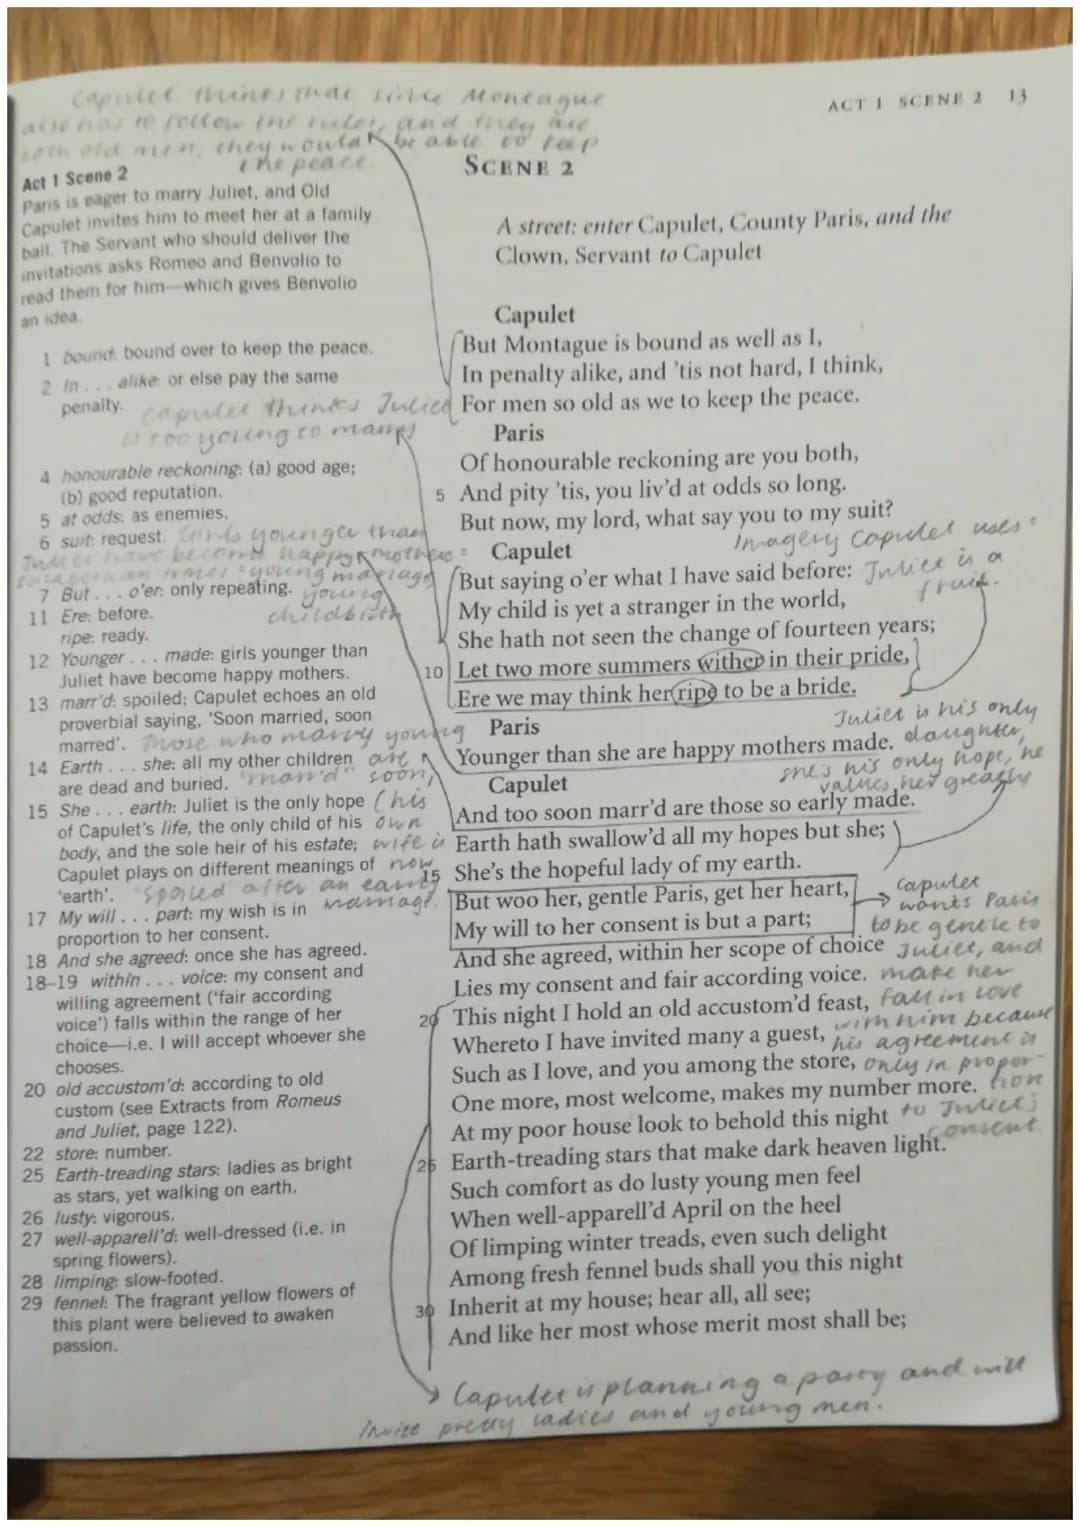 Capulet thinks that since Montague
also has to follow the rules, and they are
both old men, they would be able to keep
the peace.
ACT 1 SCENE 2 13
Act 1 Scene 2
Paris is eager to marry Juliet, and Old
Capulet invites him to meet her at a family
ball. The Servant who should deliver the
invitations asks Romeo and Benvolio to
read them for him—which gives Benvolio
an idea.
1 bound: bound over to keep the peace.
2 In . . . alike: or else pay the same
penalty.
Capulet thinks Juliet
is too young to marry
4 honourable reckoning: (a) good age;
(b) good reputation.
5 at odds: as enemies.
6 suit: request.
Girls younger than
Juliet have become happy mothers
young marriage
young
childbirth
7 But . . . o'er: only repeating.
11 Ere: before.
ripe: ready.
12 Younger . . . made: girls younger than
Juliet have become happy mothers.
13 marr'd: spoiled; Capulet echoes an old
proverbial saying, 'Soon married, soon
marred'.
14 Earth . . . she: all my other children
are dead and buried.
15 She . . . earth: Juliet is the only hope
of Capulet's life, the only child of his
body, and the sole heir of his estate;
Capulet plays on different meanings of
'earth'.
Those who marry young
are
"marr'd" soon,
(his
own
wife is
now
"spoiled" after an early
marriage.
17 My will . . . part: my wish is in
proportion to her consent.
18 And she agreed: once she has agreed.
18–19 within . . . voice: my consent and
willing agreement ('fair according
voice') falls within the range of her
choice—i.e. I will accept whoever she
chooses.
20 old accustom'd: according to old
custom (see Extracts from Romeus
and Juliet, page 122).
22 store: number.
25 Earth-treading stars: ladies as bright
as stars, yet walking on earth.
26 lusty: vigorous.
27 well-apparell'd: well-dressed (i.e. in
spring flowers).
28 limping: slow-footed.
29 fennel: The fragrant yellow flowers of
this plant were believed to awaken
passion.
SCENE 2
A street: enter Capulet, County Paris, and the
Clown, Servant to Capulet
Capulet
But Montague is bound as well as I,
In penalty alike, and 'tis not hard, I think,
For men so old as we to keep the peace.
Paris
Of honourable reckoning are you both,
5 And pity 'tis, you liv'd at odds so long.
But now, my lord, what say you to my suit?
Capulet
But saying o'er what I have said before:
My child is yet a stranger in the world,
She hath not seen the change of fourteen years;
10 Let two more summers wither in their pride,
Ere we may think her ripe to be a bride.
Paris
Younger than she are happy mothers made.
Capulet
And too soon marr'd are those so early made.
Earth hath swallow'd all my hopes but she;
15 She's the hopeful lady of my earth.
But woo her, gentle Paris, get her heart,
My will to her consent is but a part;
And she agreed, within her scope of choice
Lies my consent and fair according voice.
20 This night I hold an old accustom'd feast,
Whereto I have invited many a guest,
Such as I love, and you among the store,
One more, most welcome, makes my number more.
At my poor house look to behold this night
25 Earth-treading stars that make dark heaven light.
Such comfort as do lusty young men feel
When well-apparell'd April on the heel
Of limping winter treads, even such delight
Among fresh fennel buds shall you this night
30 Inherit at my house; hear all, all see;
And like her most whose merit most shall be;
Imagery Capulet uses:
Juliet is a
fruit.
Juliet is his only
daughter,
she's his only hope, he
values her greatly
Capulet
wants Paris
to be gentle to
Juliet, and
make her
fall in love
with him because
his agreement is
only in propor-
tion
to Juliet's
consent.
Capulet is planning a party and will
invite pretty ladies and young men.